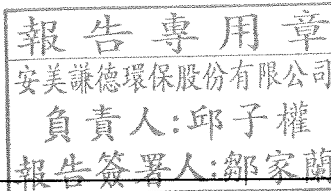 報告專用章
安美謙德環保股份有限公司
負責人:邱子權
報告簽署人:鄒家蘭